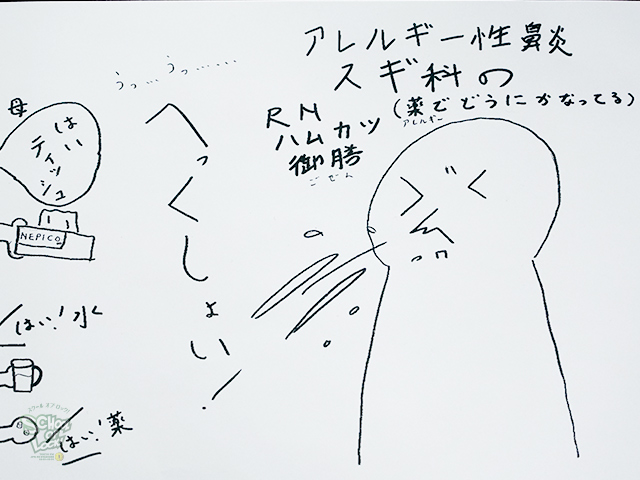 アレルギー性鼻炎
スギ科の
(薬でどうにかなってる)
アレルギー
RN
ハムカツ
御膳
ごぜん
うっ…うっ……
へっくしょい!
母
はい
ティッシュ
NEPICO
はい!水
はい!薬